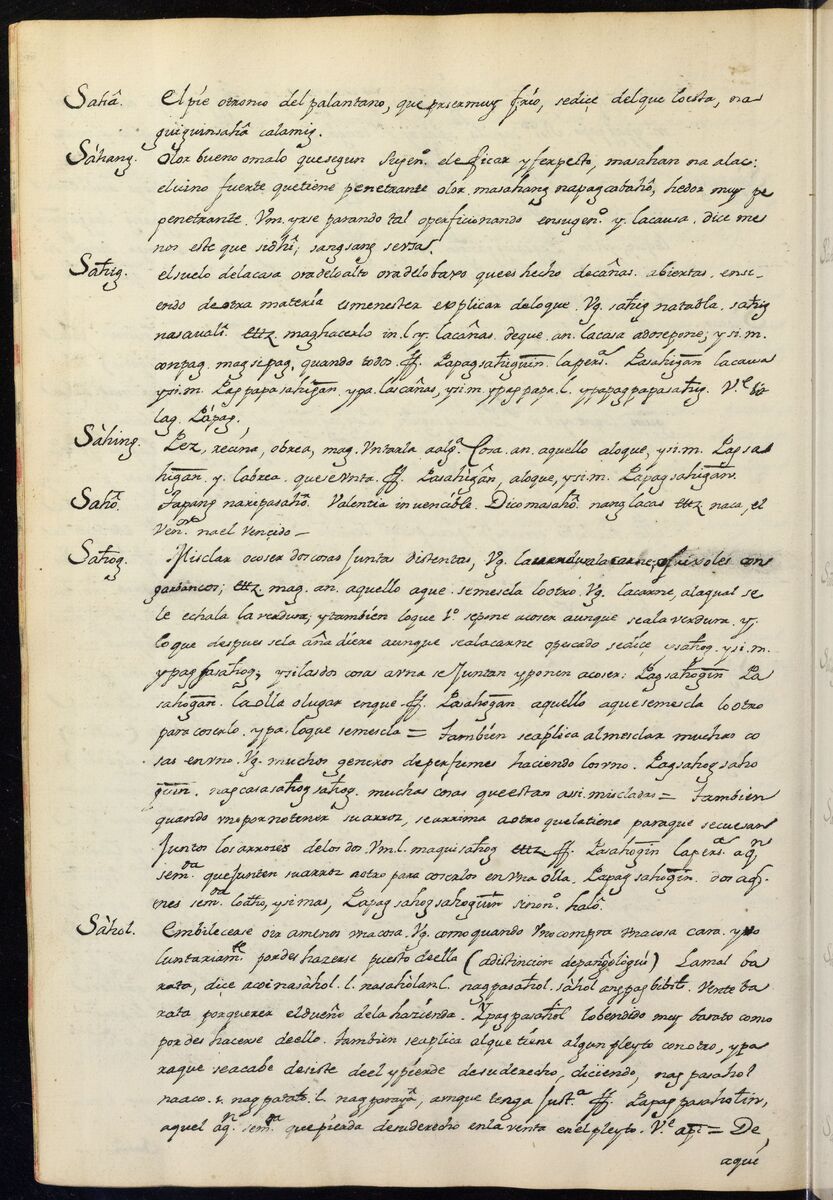 Sahã. El pie o tronco del palantano, que pr ser muy frio, se diçe del que lo esta, na
guiguinsahã calamig.
Sàhang. Olor bueno o malo que segun su gen.º ele ficar y ferpecto, masahan na alac:
el vino fuerte que tiene penetrante olor. masahang na pagcabahô, hedor muy pe
penetrante. Vm. yrse parando tal o perficionando en su gen.º y. la causa. dice me
nos este que sidhî; sangsang sensa.
Sahig. el suelo de la casa ora de lo alto ora de lo baxo que es hecho de cañas. abiertas. ensi-
endo de otra materia es menester explicar de lo que. Vg. sahig na tabla. sahig
na savali. ettz. mag hacerlo in. l. y. la cañas. de que. an. la casa a do se pone; y si. m.
con pag. magsipag. quando todos. ff. Papagsahiguin. la persª. Pasahigan la causa
y si. m. Pagpapasahigan. ypa. las cañas, y si. m. ypagpapa. l. ypapagpapasahig. V.e
lag. Lápag.
Sàhing. Pez, recina, obrea, mag. Vntarla a algª. Cosa. an. aquello a lo que, y si. m. Pagsa
higan. y. la brea. que se vnta. ff. Pasahigan, a lo que, y si. m. Papagsahigan.
Sahõ. Tapang na ripasahõ. Valentia invencible. Dico masahõ. nang lacas ettz naca, el
na el vençido —
Sahog. Misclar o coser dos cosas juntas distentas, Vg. la la carne, o frixoles con
garbancos; ettz. mag. an. aquello a que. se mescla lo otro. Vg. la carne, a la qual se
le echa la verdura; y tambien lo que 1.º se pone a coser aunque sea la verdura. y.
lo que despues se la añadiere aunque sea la carne o pescado se diçe ysahog. y si. m.
ypagsasahog; y si las dos cosas a vna se juntan y ponen a coser: Pagsahogin Pa
sahogan. la olla o lugar en que. ff. Pasahogan aquello a que se mescla lo otro
para coserlo. ypa. lo que se mescla = tambien se aplica al mesclar muchas co
sas en vno. Vg. muchos generos de perfumes haciendo los vno. Pagsahogsaho
guin. nagcasasahogsahog. muchas cosas que estan assi miscladas = tambien
quando vno por no tener su arroz, se arrima a otro que la tiene para que se cuesan
juntos los arroces de los dos. Vm. l. maquisahog ettz ff. Pasahogin la persª. aqn
sem.da que junten su arroz a otro para coserlos en vna olla. Papagsahogin. dos aqs.
nes sem.da lo otro, y si mas, Papagsahogsahoguin sinonº. halô.
Sàhol. Embilecase ora a menos vna cosa. Vg. como quando vno compra vna cosa cara. y vo
luntariamte por deshazerse puesto de ella (a distincion de pañgoligui) La mal ba
rata, dice acoi nasàhol. l. nasahòlan l. nagpasahol. sàhol ang pagbibili. Vente ba
rata por querer el dueño de la hazienda. Ypagpasahol lo bendido muy barato como
por deshacerse de ello. tambien se aplica al que tiene algun pleyto con otro, y pa
ra que se acabe desiste de el y pierde de su derecho, diciendo, nagpasahol
na aco. v. nagpatalo. l. nagparayã, aunque tenga just.ª ff. Papagpasaholin,
aquel aqn. sem.da que pierda de su derecho en la venta en el pleyto. V.e = De
aqui